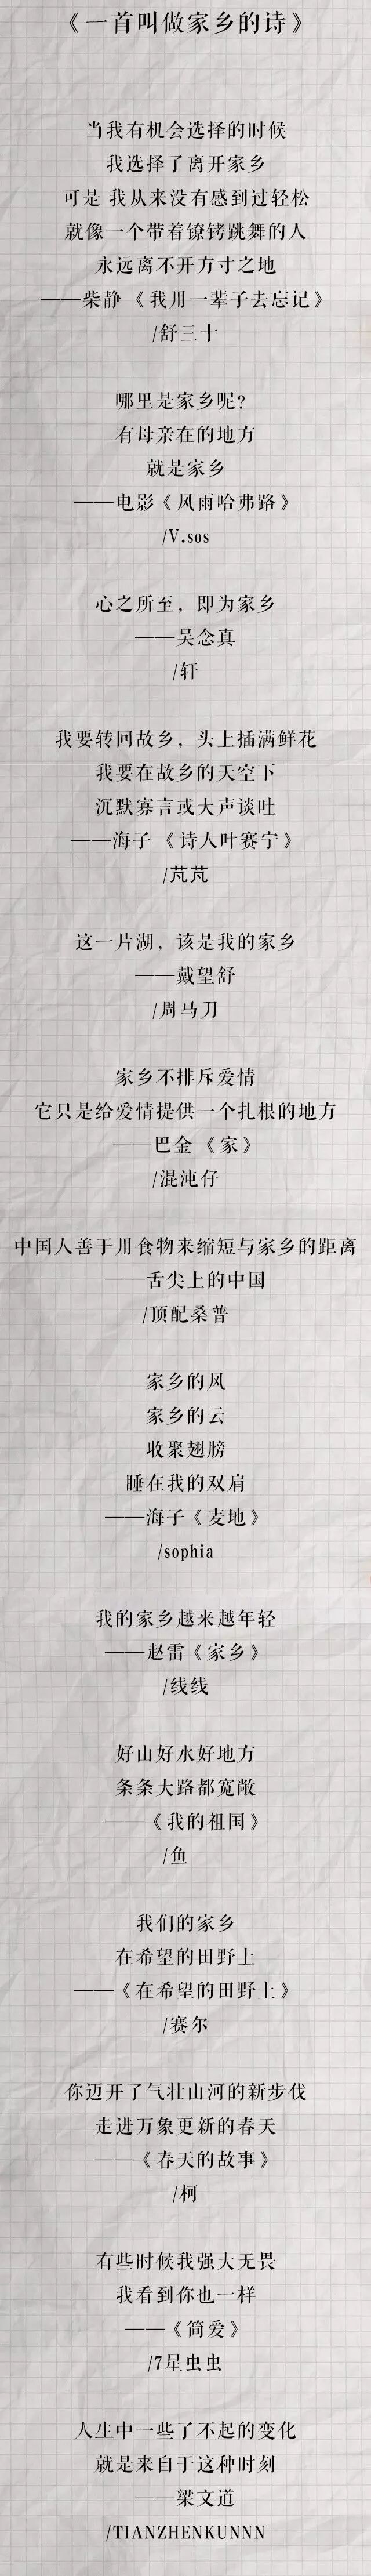 《一首叫做家乡的诗》
当我有机会选择的时候
我选择了离开家乡
可是 我从来没有感到过轻松
就像一个带着镣铐跳舞的人
永远离不开方寸之地
——柴静《我用一辈子去忘记》
/舒三十
哪里是家乡呢？
有母亲在的地方
就是家乡
——电影《风雨哈弗路》
/V.sos
心之所至，即为家乡
——吴念真
/轩
我要转回故乡，头上插满鲜花
我要在故乡的天空下
沉默寡言或大声谈吐
——海子 《诗人叶赛宁》
/芃芃
这一片湖，该是我的家乡
——戴望舒
/周马刀
家乡不排斥爱情
它只是给爱情提供一个扎根的地方
——巴金 《家》
/混沌仔
中国人善于用食物来缩短与家乡的距离
——舌尖上的中国
/顶配桑普
家乡的风
家乡的云
收聚翅膀
睡在我的双肩
——海子《麦地》
/sophia
我的家乡越来越年轻
——赵雷《家乡》
/线线
好山好水好地方
条条大路都宽敞
——《我的祖国》
/鱼
我们的家乡
在希望的田野上
——《在希望的田野上》
/赛尔
你迈开了气壮山河的新步伐
走进万象更新的春天
——《春天的故事》
/柯
有些时候我强大无畏
我看到你也一样
——《简爱》
/7星虫虫
人生中一些了不起的变化
就是来自于这种时刻
——梁文道
/TIANZHENKUNNN